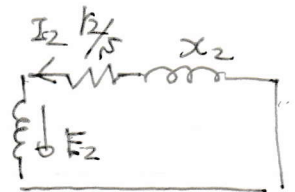 I₂ r₂/s x₂
E₂